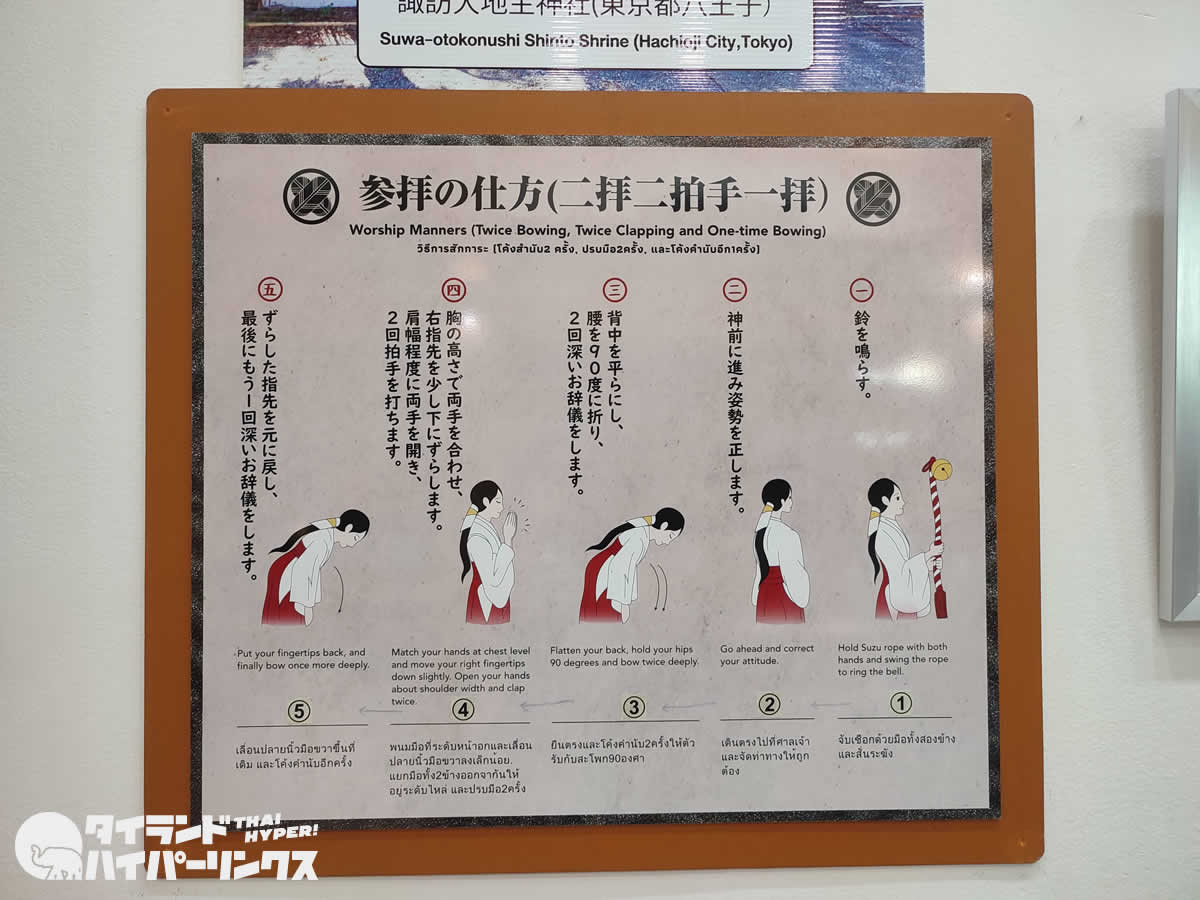 諏訪大地主神社(東京都八王子)
Suwa-otokonushi Shinto Shrine (Hachioji City,Tokyo)
参拝の仕方(二拝二拍手一拝)
Worship Manners (Twice Bowing, Twice Clapping and One-time Bowing)
วิธีการสักการะ [โค้งคำนับ2 ครั้ง, ปรบมือ2ครั้ง, และโค้งคำนับอีกาครั้ง]
一
鈴を鳴らす。
二
神前に進み姿勢を正します。
三
背中を平らにし、
腰を90度に折り、
2回深いお辞儀をします。
四
胸の高さで両手を合わせ、
右指先を少し下にずらします。
肩幅程度に両手を開き、
2回拍手を打ちます。
五
ずらした指先を元に戻し、
最後にもう一回深いお辞儀をします。
Hold Suzu rope with both
hands and swing the rope
to ring the bell.
1
จับเชือกด้วยมือทั้งสองข้าง
และสั่นระฆัง
Go ahead and correct
your attitude.
2
เดินตรงไปที่ศาลเจ้า
และจัดท่าทางให้ถูก
ต้อง
Flatten your back, hold your hips
90 degrees and bow twice deeply.
3
ยืนตรงและโค้งคำนับ2ครั้งให้ตัว
รับกับสะโพก90องศา
Match your hands at chest level
and move your right fingertips
down slightly. Open your hands
about shoulder width and clap
twice.
4
พนมมือที่ระดับหน้าอกและเลื่อน
ปลายนิ้วมือขวาลงเล็กน้อย.
แยกมือทั้ง2ข้างออกจากันให้
อยู่ระดับไหล่ และปรบมือ2ครั้ง
Put your fingertips back, and
finally bow once more deeply.
5
เลื่อนปลายนิ้วมือขวาขึ้นที่
เดิม และโค้งคำนับอีกครั้ง
タイランド THAI HYPER!
ハイパーリンクス